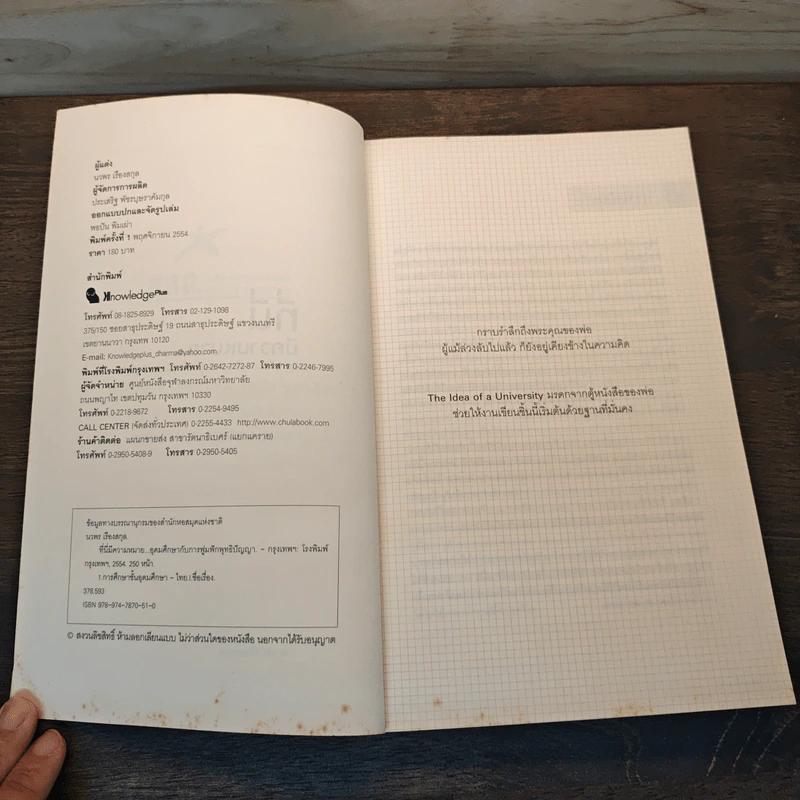 ผู้แต่ง
นวพร เรืองสกุล
ผู้จัดการการผลิต
ประเสริฐ พัชรบุษราคัมกุล
ออกแบบปกและจัดรูปเล่ม
พอปัน พิมเผ่า
พิมพ์ครั้งที่ 1 พฤศจิกายน 2554
ราคา 180 บาท
สำนักพิมพ์
KnowledgePlus
โทรศัพท์ 08-1825-8929 โทรสาร 02-129-1098
375/150 ซอยสาธุประดิษฐ์ 19 ถนนสาธุประดิษฐ์ แขวงนนทรี
เขตยานนาวา กรุงเทพ 10120
E-mail: Knowledgeplus_dharma@yahoo.com
พิมพ์ที่โรงพิมพ์กรุงเทพฯ โทรศัพท์ 0-2642-7272-87 โทรสาร 0-2246-7995
ผู้จัดจำหน่าย ศูนย์หนังสือจุฬาลงกรณ์มหาวิทยาลัย
ถนนพญาไท เขตปทุมวัน กรุงเทพฯ 10330
โทรศัพท์ 0-2218-9872 โทรสาร 0-2254-9495
CALL CENTER (จัดส่งทั่วประเทศ) 0-2255-4433 http://www.chulabook.com
ร้านค้าติดต่อ แผนกขายส่ง สาขารัตนาธิเบศร์ (แยกแคราย)
โทรศัพท์ 0-2950-5408-9 โทรสาร 0-2950-5405
ข้อมูลทางบรรณานุกรมของสำนักหอสมุดแห่งชาติ
นวพร เรืองสกุล.
ที่นี่มีความหมาย...อุดมศึกษากับการฟูมฟักพุทธิปัญญา. – กรุงเทพฯ: โรงพิมพ์
กรุงเทพฯ, 2554. 250 หน้า.
1.การศึกษาขั้นอุดมศึกษา – ไทย.I.ชื่อเรื่อง.
378.593
ISBN 978-974-7870-51-0
© สงวนลิขสิทธิ์ ห้ามลอกเลียนแบบ ไม่ว่าส่วนใดของหนังสือ นอกจากได้รับอนุญาต
กราบรำลึกถึงพระคุณของพ่อ
ผู้แม้ล่วงลับไปแล้ว ก็ยังอยู่เคียงข้างในความคิด
The Idea of a University มรดกจากตู้หนังสือของพ่อ
ช่วยให้งานเขียนชิ้นนี้เริ่มต้นด้วยฐานที่มั่นคง